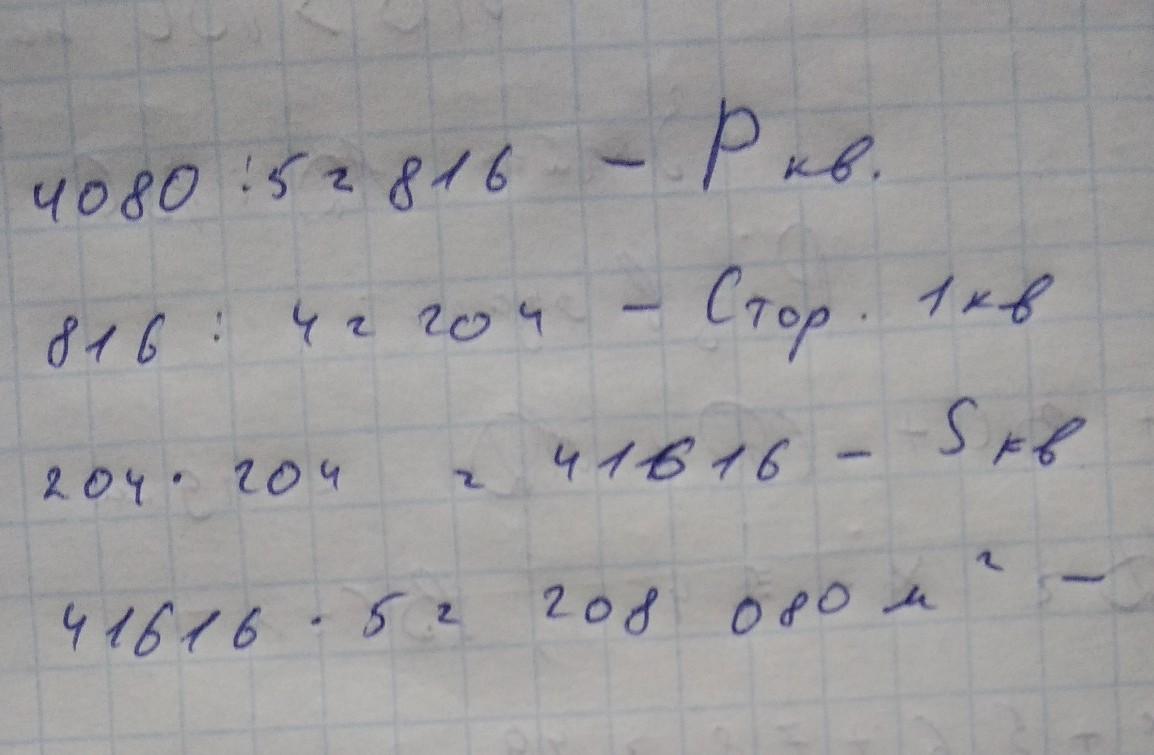 4080 : 5 = 816 - P кв.
816 : 4 = 204 - Стор. 1 кв
204 · 204 = 41616 - S кв
41616 · 5 = 208 080 м² -